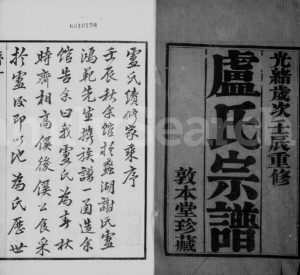 光緒歲次壬辰重修
盧氏宗譜
敦本堂珍藏
盧氏續修家乘序
壬辰秋余館於蠡湖謝氏盧
鴻範先生攜族譜一函造余
館告余曰我盧氏為春秋
時齊相高傒後傒公食采
於盧後即以地為氏歷世